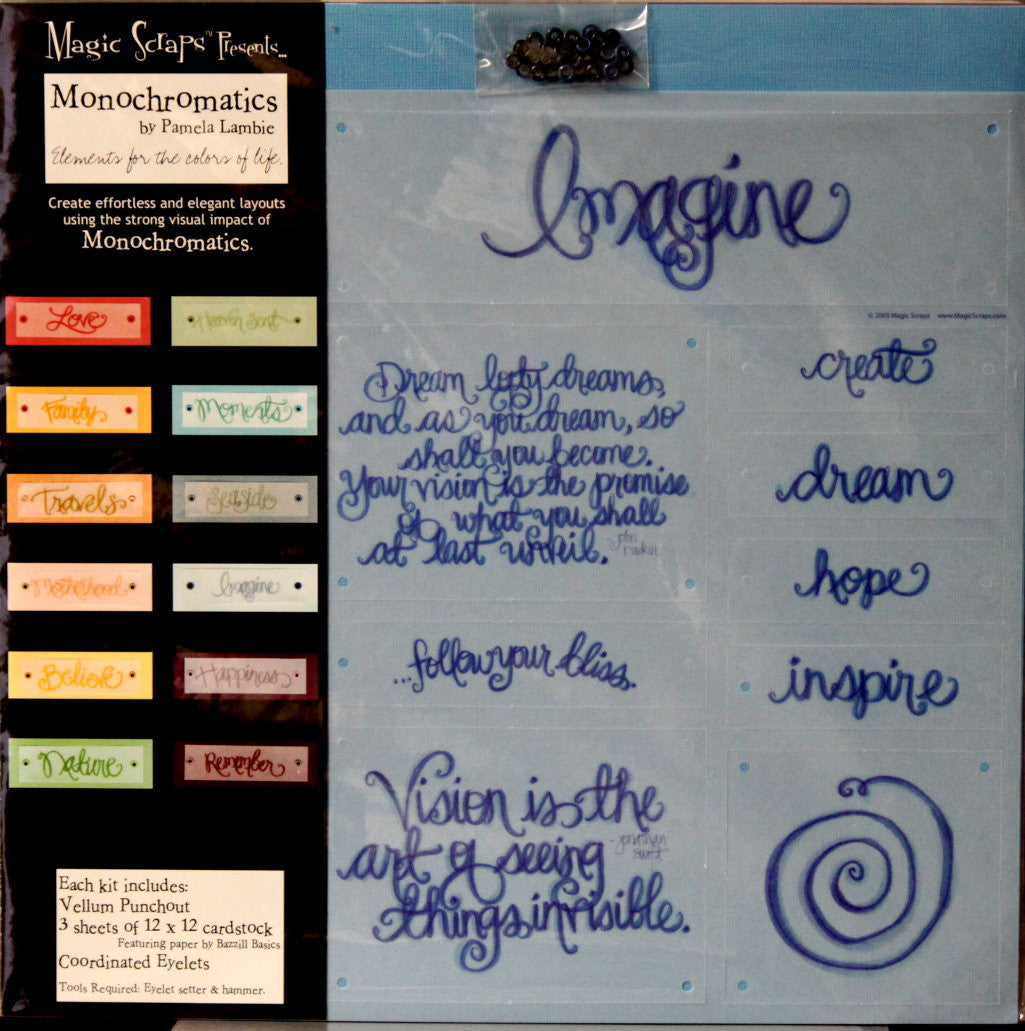 Magic Scraps™ Presents...
Monochromatics
by Pamela Lambie
Elements for the colors of life.
Create effortless and elegant layouts
using the strong visual impact of
Monochromatics.
Love
Heaven Sent
Family
Moments
Travels
Seaside
Motherhood
Imagine
Believe
Happiness
Nature
Remember
Each kit includes:
Vellum Punchout
3 sheets of 12 x 12 cardstock
Featuring paper by Bazzill Basics
Coordinated Eyelets
Tools Required: Eyelet setter & hammer.
Imagine
© 2003 Magic Scraps www.MagicScraps.com
Dream lofty dreams,
and as you dream, so
shall you become.
Your vision is the promise
of what you shall
at last unveil.
-john
ruskin
...follow your bliss.
Vision is the
art of seeing
things invisible.
-jonathan
swift
create
dream
hope
inspire